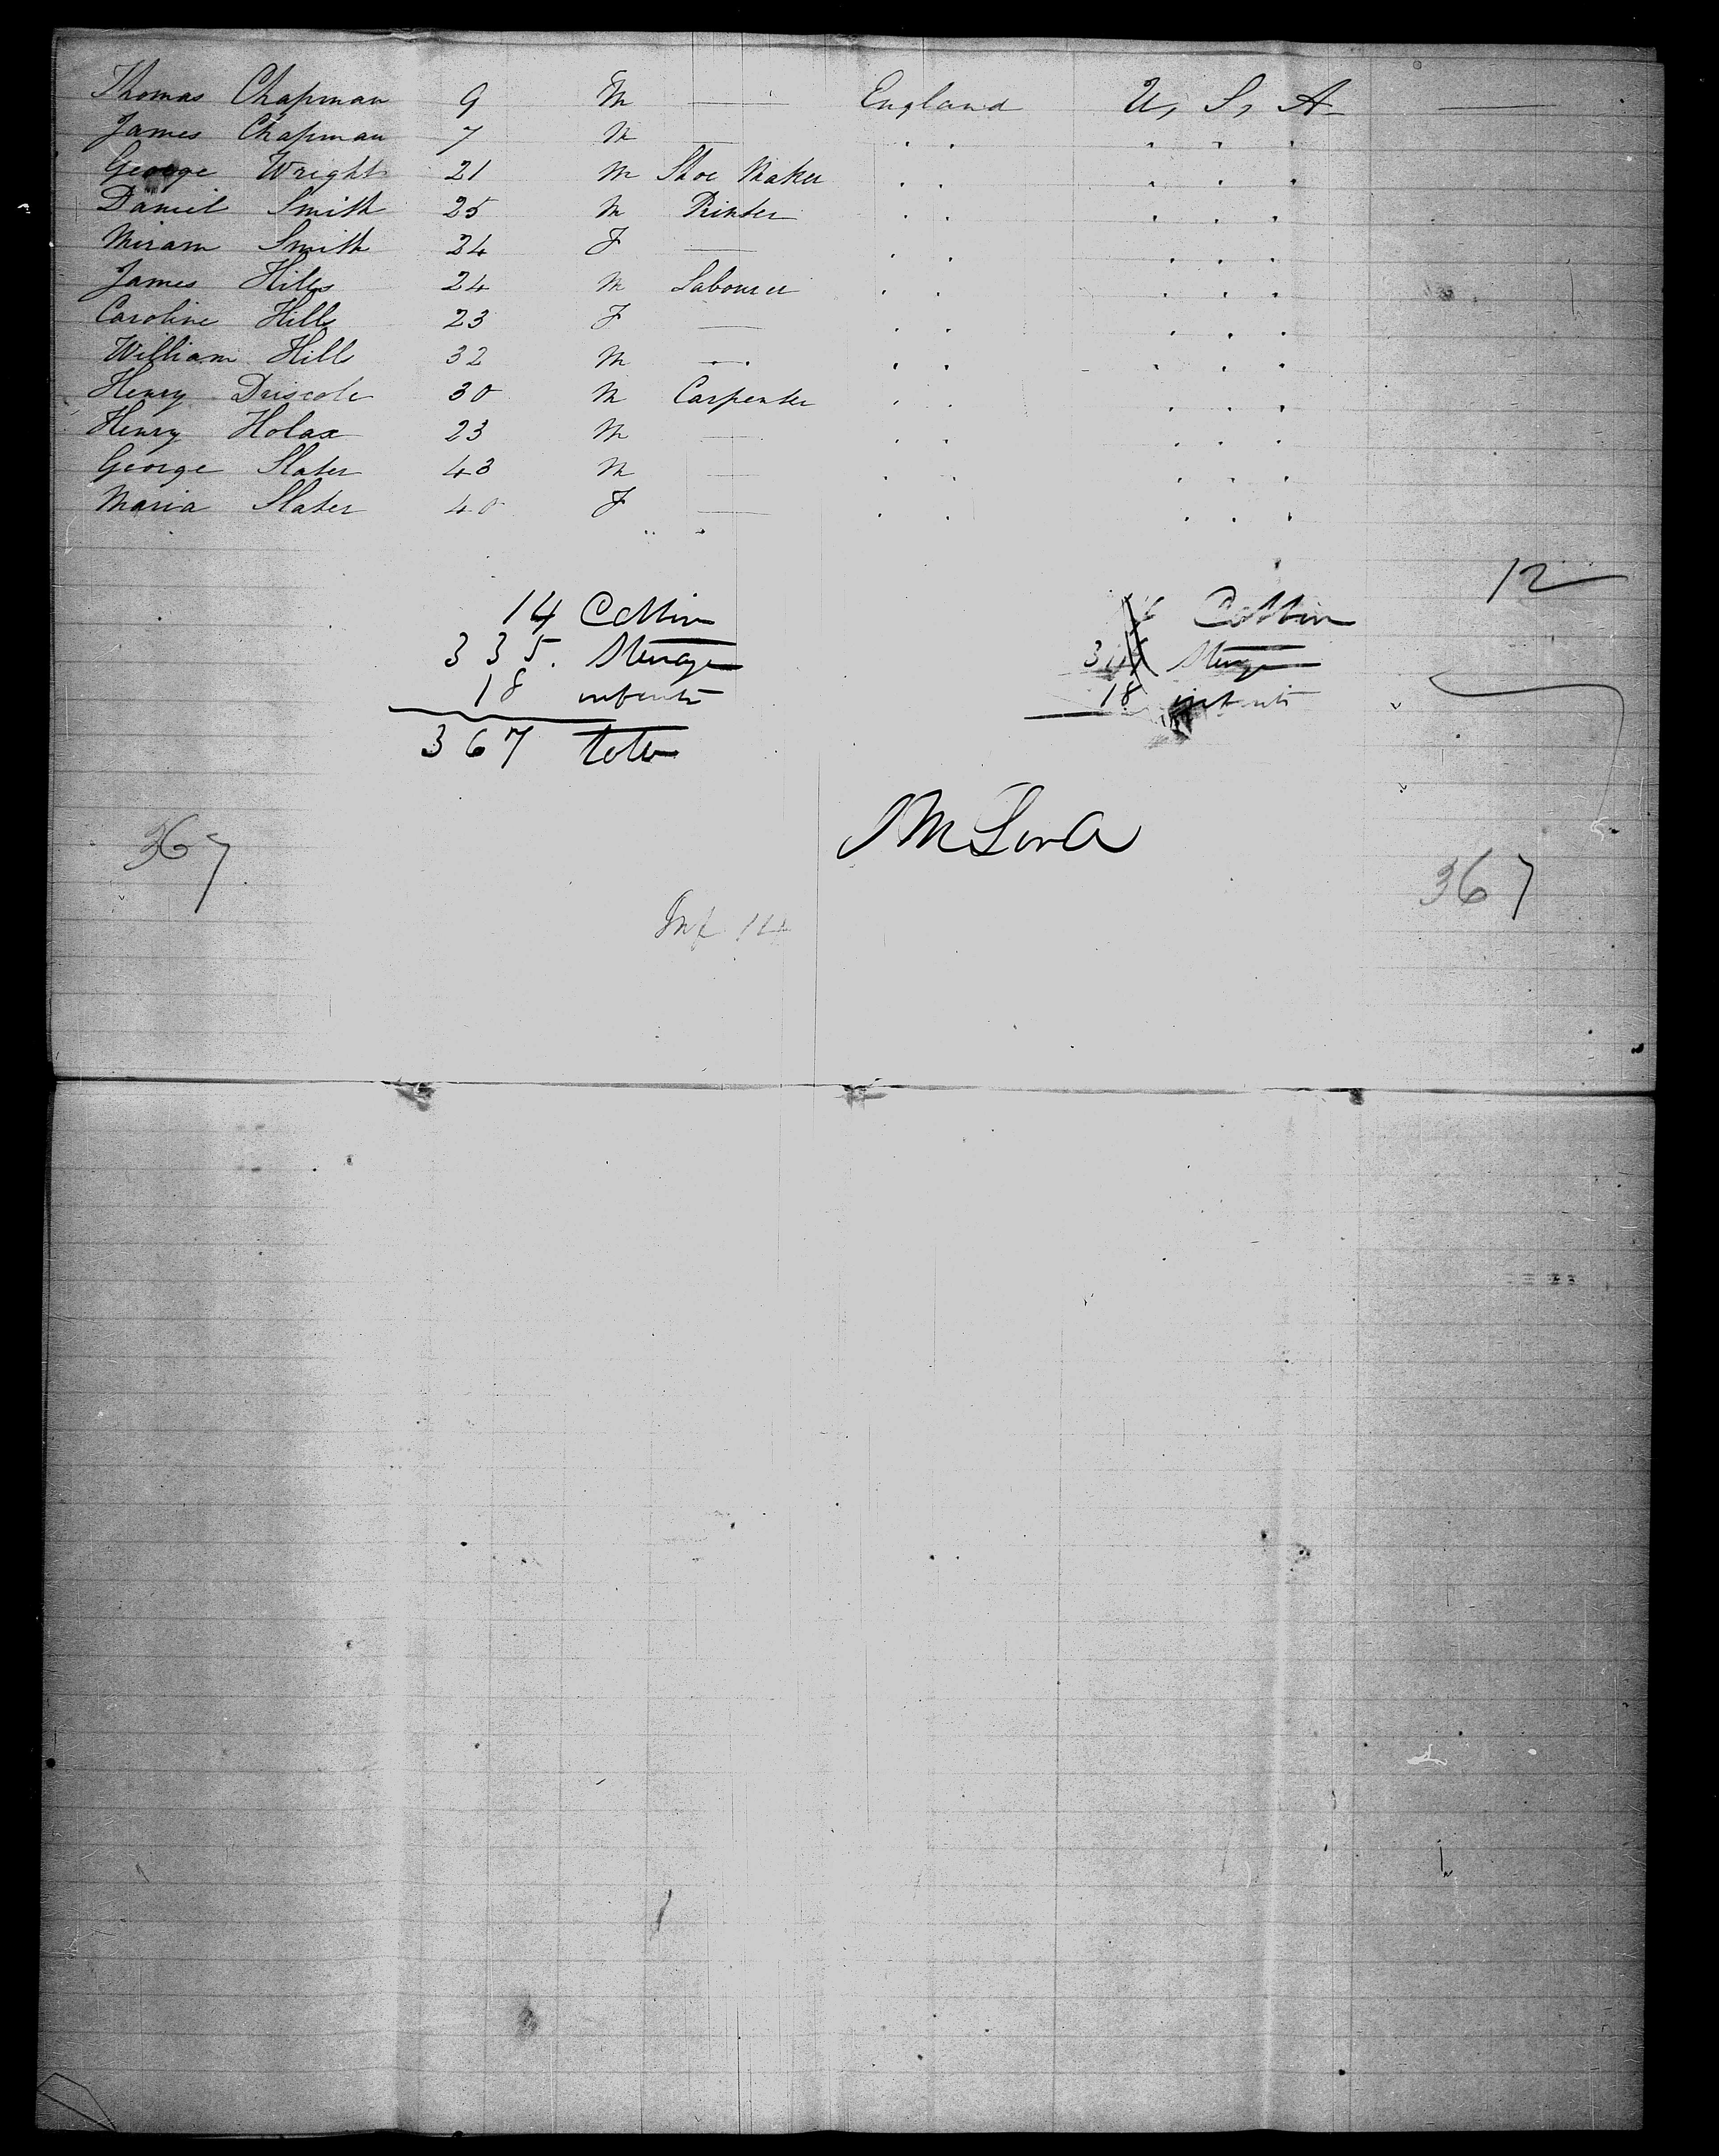 Thomas Chapman 9 M — England U, S, A —
James Chapman 7 M — . . . . .
George Wright 21 M Shoe Maker . . . . .
Daniel Smith 25 M Printer . . . . .
Miriam Smith 24 F — . . . . .
James Hills 24 M Labourer . . . . .
Caroline Hills 23 F — . . . . .
William Hill 32 M — . . . . .
Henry Driscole 30 M Carpenter . . . . .
Henry Holax 23 M — . . . . .
George Slater 43 M — . . . . .
Maria Slater 40 F — . . . . .
12
14 Cabbin Cabbin
335. Steerage Steerage
18 infants 18 infants
367 total
367 367
Inf 14